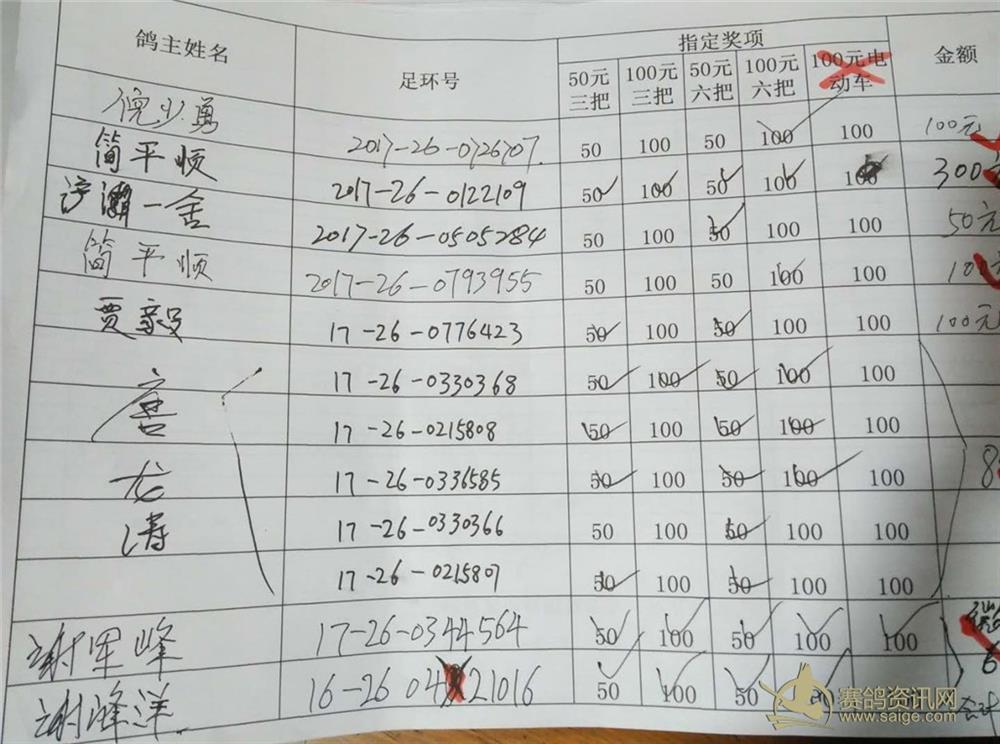 鸽主姓名 足环号 指定奖项 金额
50元三把 100元三把 50元六把 100元六把 100元电动车
倪少勇 2017-26-0726707 50 100 50 100 100 100元
简平顺 2017-26-0122109 50 100 50 100 100 300元
浐灞一舍 2017-26-0505284 50 100 50 100 100 50元
简平顺 2017-26-0793955 50 100 50 100 100 100
贾毅 17-26-0776423 50 100 50 100 100 100元
唐龙涛 17-26-0330368 50 100 50 100 100
17-26-0215808 50 100 50 100 100
17-26-0336585 50 100 50 100 100
17-26-0330366 50 100 50 100 100
17-26-0215807 50 100 50 100 100
谢军峰 17-26-0344564 50 100 50 100 100
谢峰洋 16-26 04 21016 50 100 50
合计
赛鸽资讯网
www.saige.com